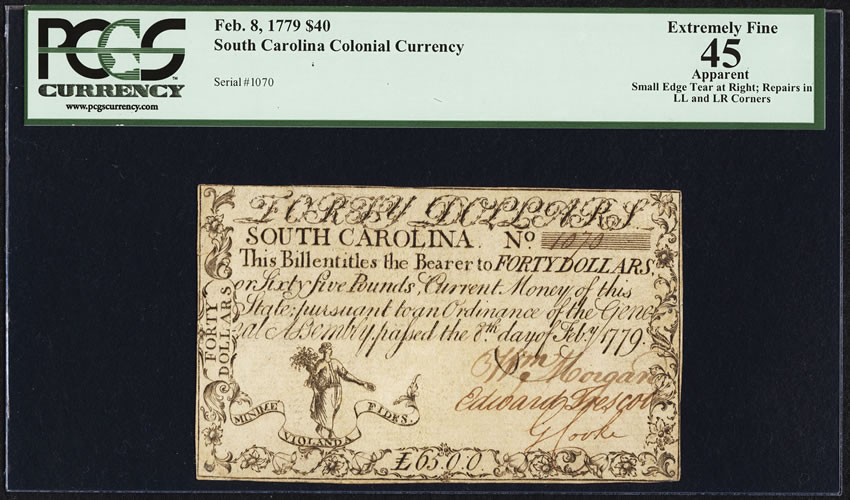 PCGS
CURRENCY
www.pcgscurrency.com
Feb. 8, 1779 $40
South Carolina Colonial Currency
Serial #1070
Extremely Fine
45
Apparent
Small Edge Tear at Right; Repairs in
LL and LR Corners
FORTY DOLLARS
SOUTH CAROLINA. No. 1070
This Bill entitles the Bearer to FORTY DOLLARS,
or Sixty five Pounds, Current Money of this
State; pursuant to an Ordinance of the Gene
ral Assembly, passed the 8th. day of Feby. 1779.
FORTY
DOLLARS
Wm Morgan
Edward Trescot
G Cooke
MINIMÆ
VIOLANDA
FIDES.
£65.0.0.